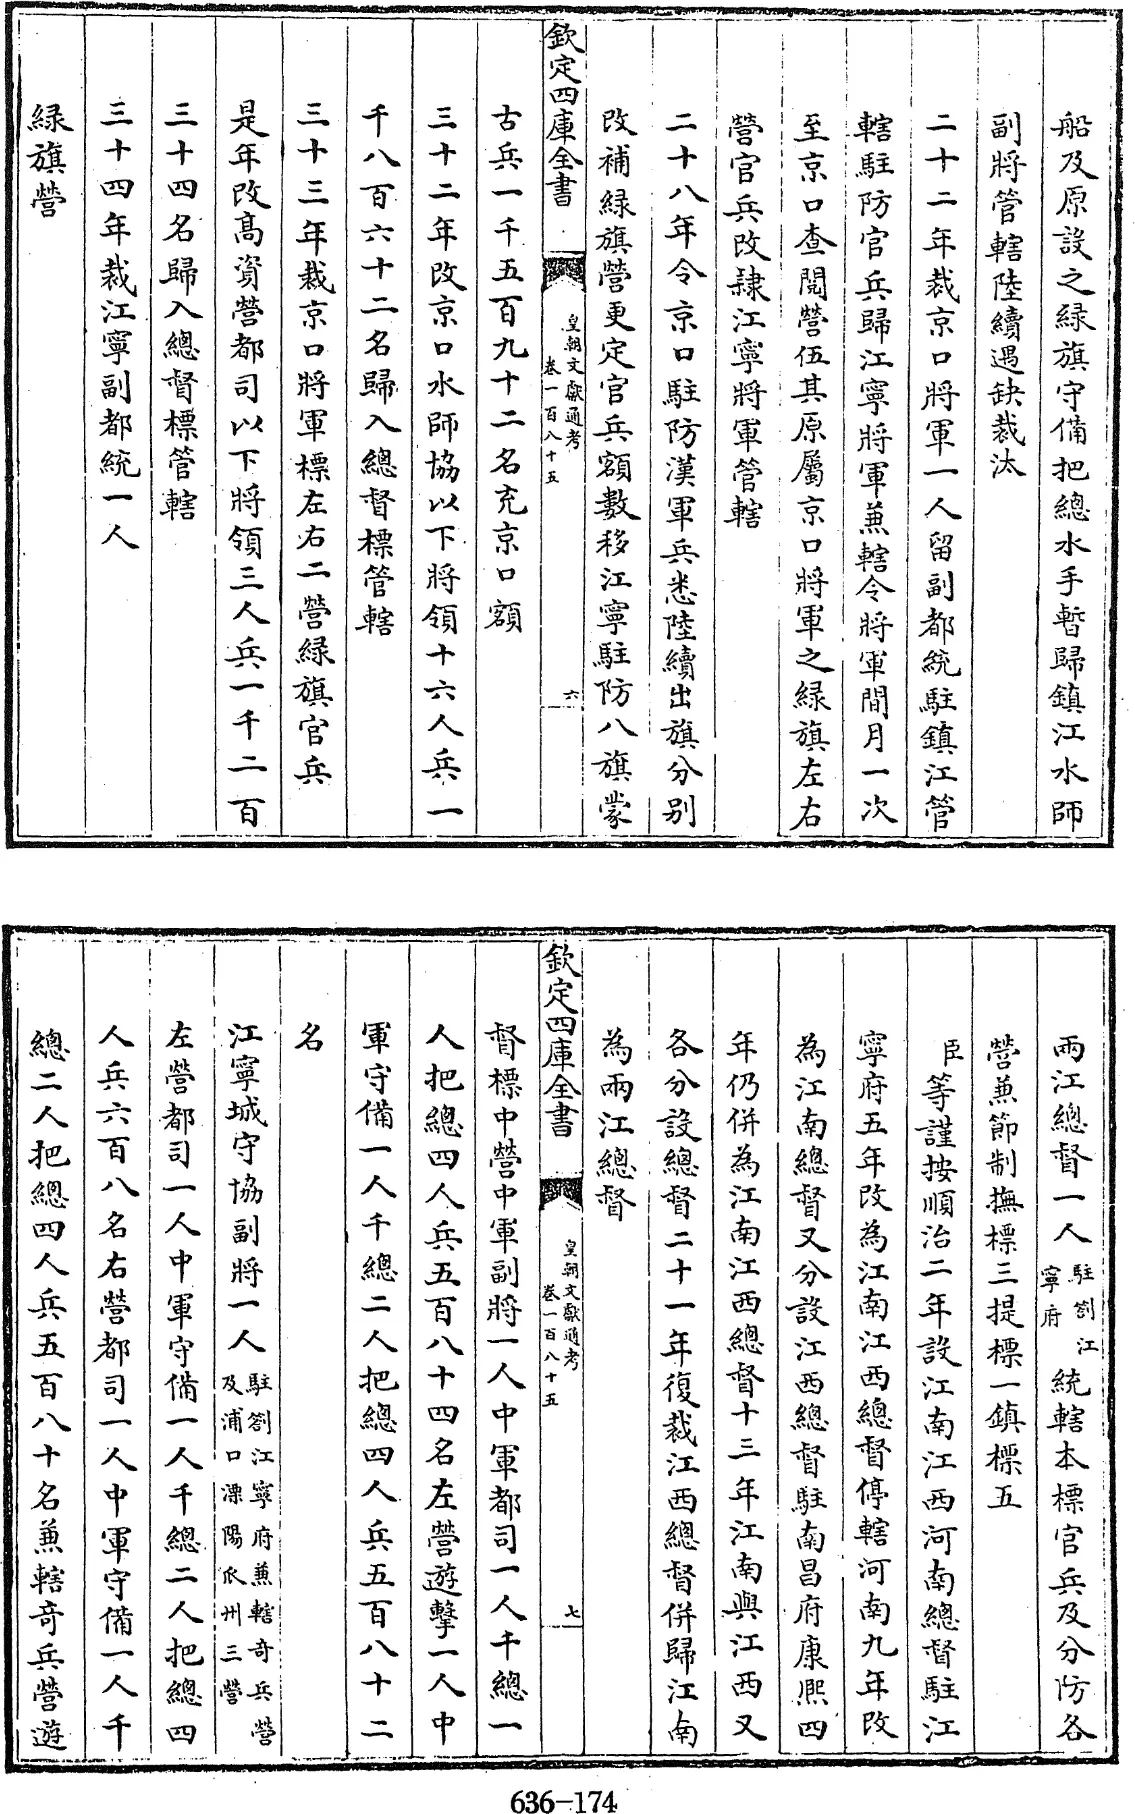 船及原設之緑旗守備把總水手暫歸鎮江水師
副將管轄陸續遇缺裁汰
二十二年裁京口將軍一人留副都統駐鎮江管
轄駐防官兵歸江寧將軍兼轄令將軍間月一次
至京口查閲營伍其原屬京口將軍之緑旗左右
營官兵改隷江寧將軍管轄
二十八年令京口駐防漢軍兵悉陸續出旗分别
改補緑旗營更定官兵額數移江寧駐防八旗蒙
欽定四庫全書
皇朝文獻通考
卷一百八十五
六
古兵一千五百九十二名充京口額
三十二年改京口水師協以下將領十六人兵一
千八百六十二名歸入總督標管轄
三十三年裁京口將軍標左右二營緑旗官兵
是年改高資營都司以下將領三人兵一千二百
三十四名歸入總督標管轄
三十四年裁江寧副都統一人
緑旗營
兩江總督一人駐劄江寧府統轄本標官兵及分防各
營兼節制撫標三提標一鎮標五
臣等謹按順治二年設江南江西河南總督駐江
寧府五年改為江南江西總督停轄河南九年改
為江南總督又分設江西總督駐南昌府康熙四
年仍併為江南江西總督十三年江南與江西又
各分設總督二十一年復裁江西總督併歸江南
為兩江總督
欽定四庫全書
皇朝文獻通考
卷一百八十五
七
督標中營中軍副將一人中軍都司一人千總一
人把總四人兵五百八十四名左營遊擊一人中
軍守備一人千總二人把總四人兵五百八十二
名
江寧城守協副將一人駐劄江寧府兼轄奇兵營及浦口溧陽瓜州三營
左營都司一人中軍守備一人千總二人把總四
人兵六百八名右營都司一人中軍守備一人千
總二人把總四人兵五百八十名兼轄奇兵營遊
636-174